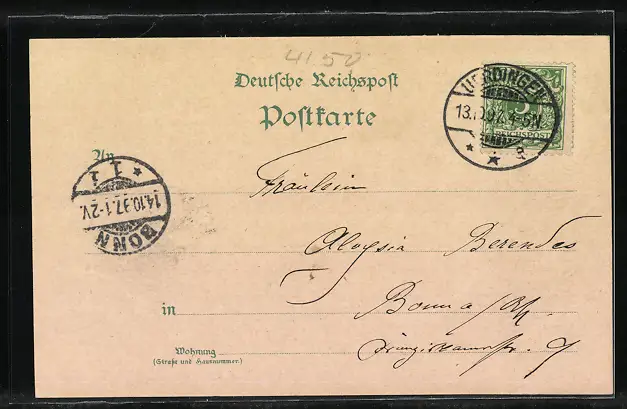 41.50
Deutsche Reichspost
Postkarte
UERDINGEN
13.10.97. 4-5N.
* * a
5
REICHSPOST
An
Fräulein
Aloysia Berendes
in Bonn a/Rh.
Wohnung Franziskanerstr. 7
(Straße und Hausnummer.)
* 1 1
14.10.97. 1-2V.
BONN